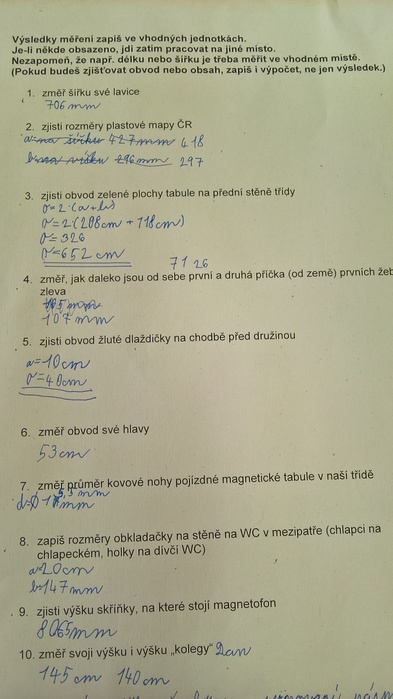 Výsledky měření zapiš ve vhodných jednotkách.
Je-li někde obsazeno, jdi zatím pracovat na jiné místo.
Nezapomeň, že např. délku nebo šířku je třeba měřit ve vhodném místě.
(Pokud budeš zjišťovat obvod nebo obsah, zapiš i výpočet, ne jen výsledek.)
1. změř šířku své lavice
706 mm
2. zjisti rozměry plastové mapy ČR
a na šířku 427 mm 418
b na výšku 296 mm 297
3. zjisti obvod zelené plochy tabule na přední stěně třídy
o=2·(a+b)
o=2(208cm + 118cm)
o=326
o=652 cm
71 26
4. změř, jak daleko jsou od sebe první a druhá příčka (od země) prvních žeb
zleva
105 mm
107 mm
5. zjisti obvod žluté dlaždičky na chodbě před družinou
a=10cm
o=40cm
6. změř obvod své hlavy
53cm
7. změř průměr kovové nohy pojízdné magnetické tabule v naší třídě
mm
8. zapiš rozměry obkladačky na stěně na WC v mezipatře (chlapci na
chlapeckém, holky na dívčí WC)
a=20cm
b=147mm
9. zjisti výšku skříňky, na které stojí magnetofon
8065mm
10. změř svoji výšku i výšku „kolegy“ Dan
145 cm 140cm